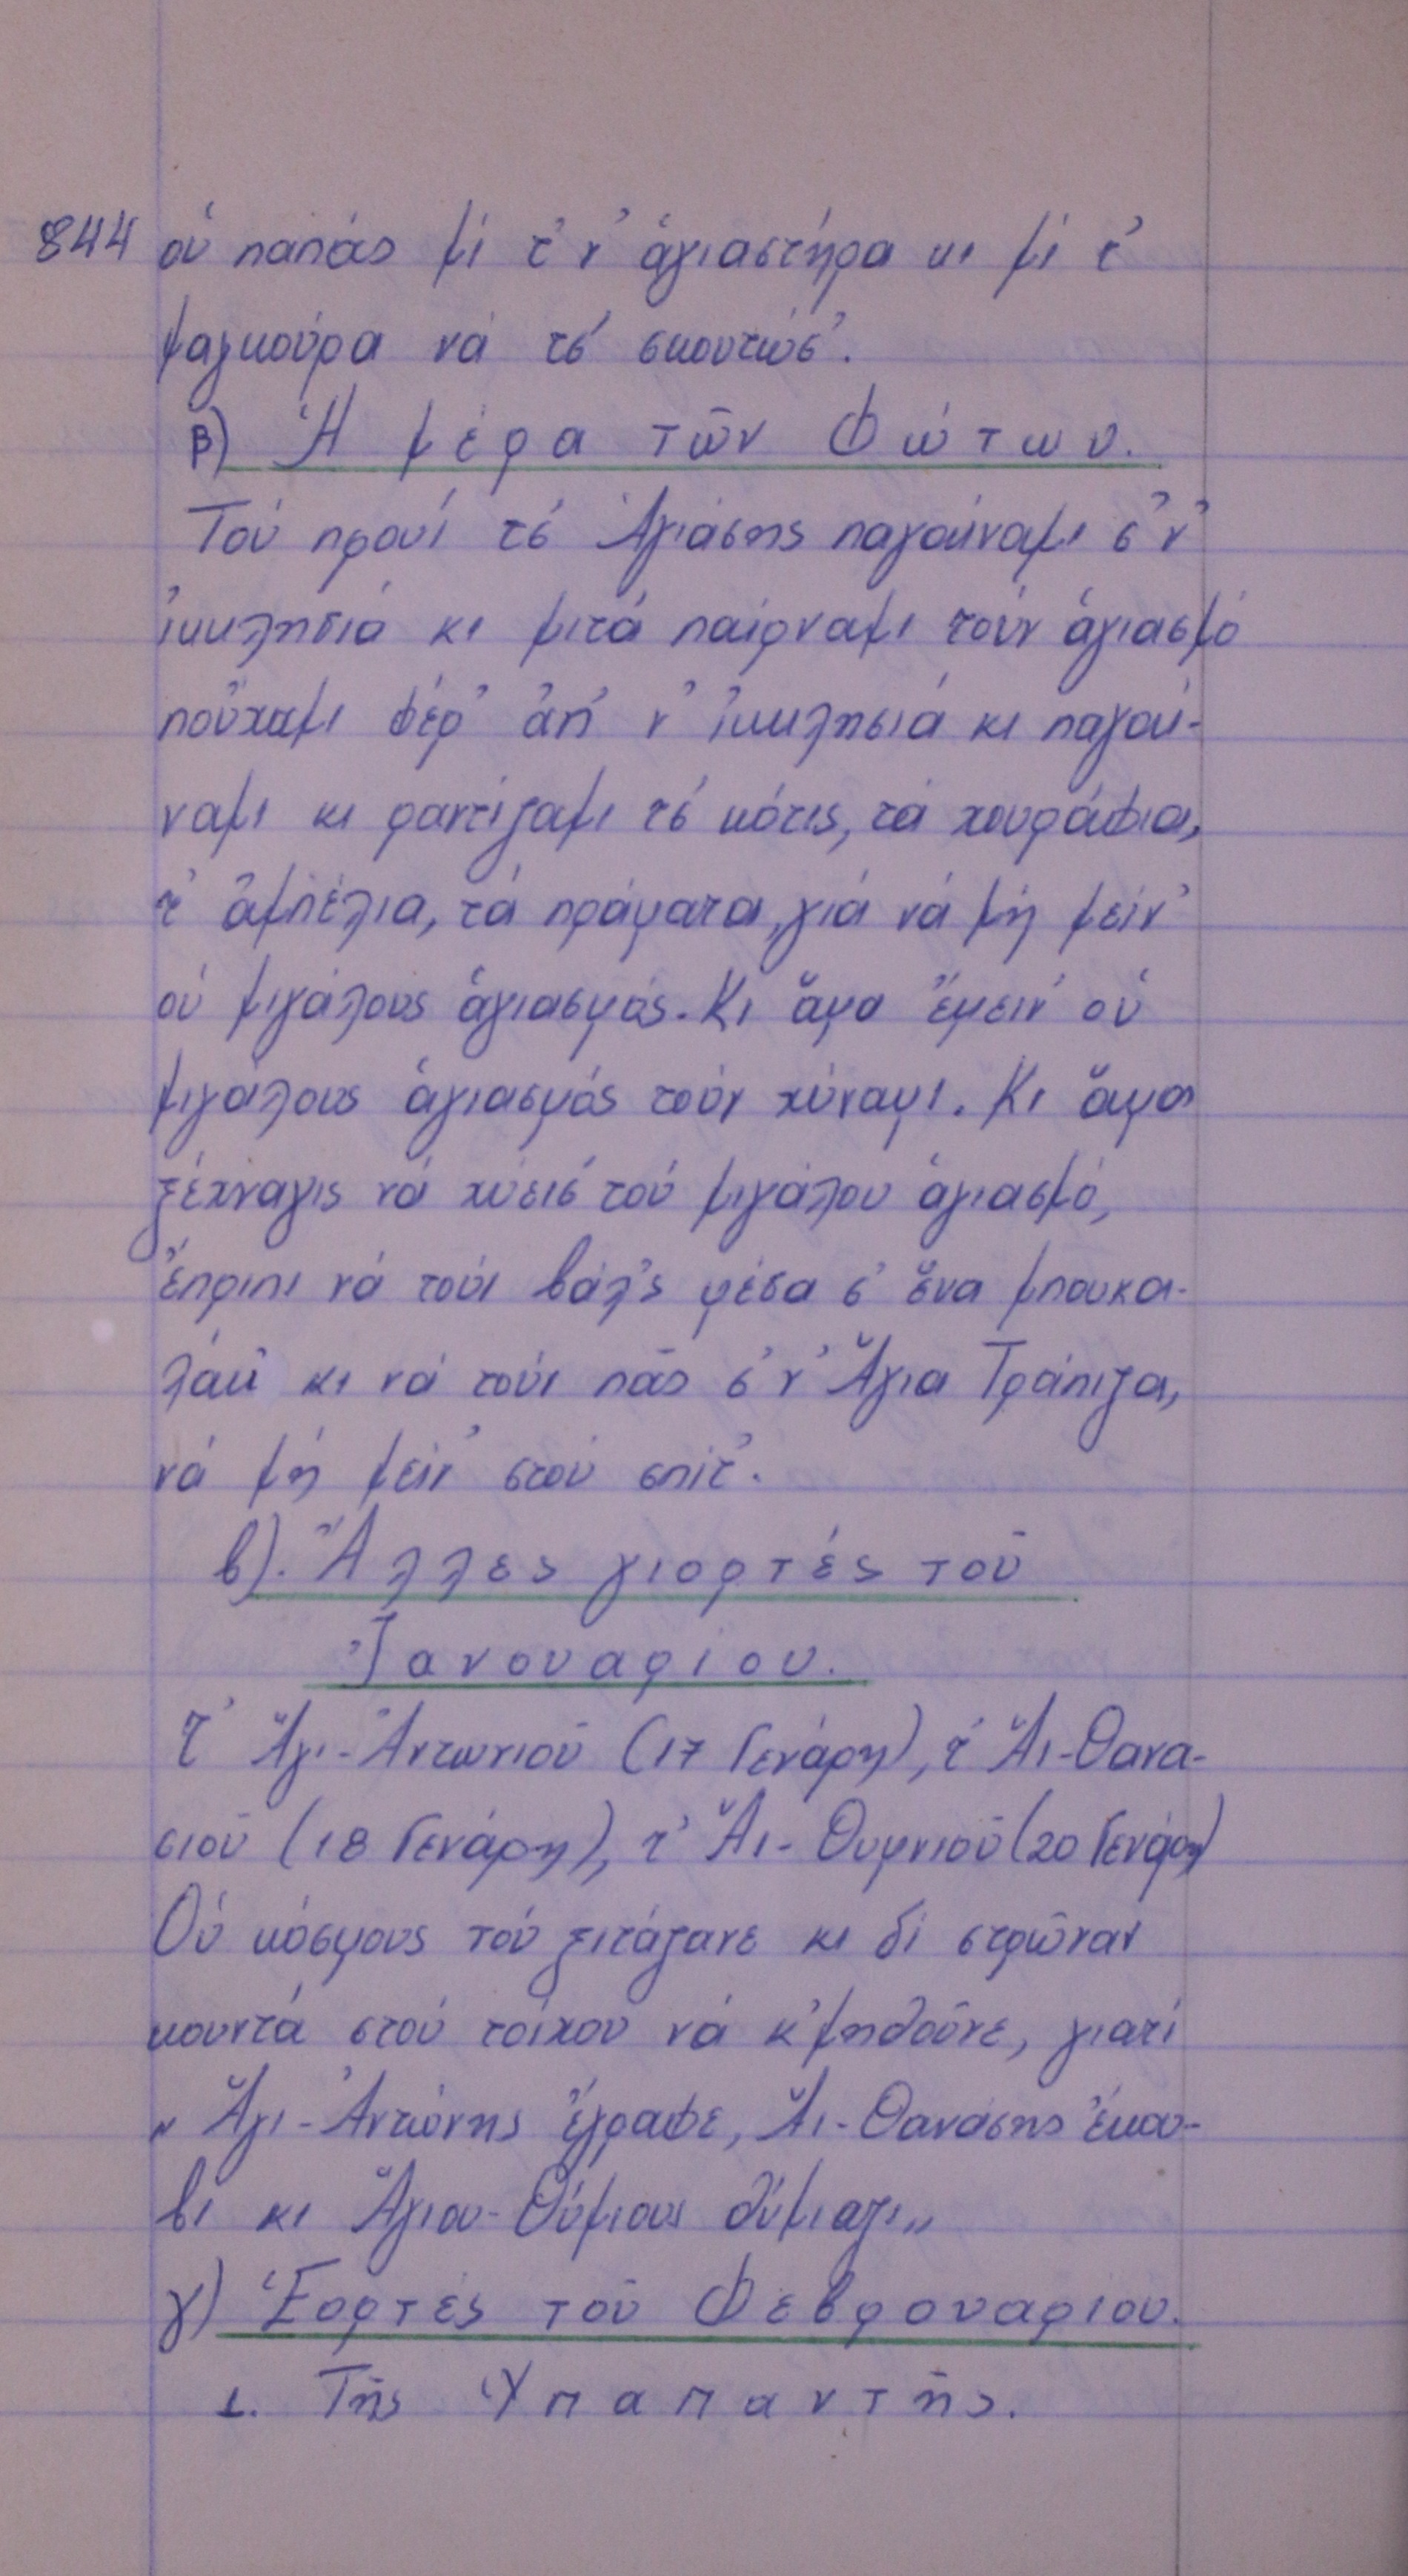 844 οὑ παπάς μί τ' ν' ἁγιαστήρα κι μί τ'
μαγκούρα νά τσ' σκουτώσ'.
β) Ἡ μέρα τῶν Φώτων.
Τού πρωυί τσ' Ἁγιάσης παγαίναμι σ' ν'
ἰκκλησιά κι μιτά παίρναμι τούν ἁγιασμό
ποὔχαμι φέρ' ἀπ' ν' ἰκκλησιά κι παγαί-
ναμι κι ραντίζαμι τσ' κότις, τά χουράφια,
τ' ἀμπέλια, τά πράματα, γιά νά μή μείν'
οὑ μιγάλους ἁγιασμός. Κι ἅμα ἔμειν' οὑ
μιγάλους ἁγιασμός τούν χύναμι. Κι ἅμα
ξέχναγις νά χύεισ' τού μιγάλου ἁγιασμό,
ἔπριπι νά τούι βάλ'ς μέσα σ' ἕνα μπουκα-
λάκι κι νά τούι πᾶς σ' ν' Ἅγια Τράπιζα,
νά μή μείν' στού σπίτ'.
β). Ἄλλες γιορτές τοῦ
Ἰανουαρίου.
Τ' Ἅγι-Ἀντωνιοῦ (17 Γενάρη), τ' Ἅι-Θανα-
σιοῦ (18 Γενάρη), τ' Ἅι-Θυμνιοῦ (20 Γενάρη)
Οὑ κόσμους τού ξιτάζανε κι δί στρῶναν
κουντά στού τοίχου νά κ'μηθοῦνε, γιατί
„Ἅγι-Ἀντώνης ἔγραφε, Ἅι-Θανάσης ἔκου-
βι κι Ἅγιου-Θύμιους θύμιαζι„
γ) Ἑορτές τοῦ Φεβρουαρίου.
1. Τῆς Ὑπαπαντῆς.